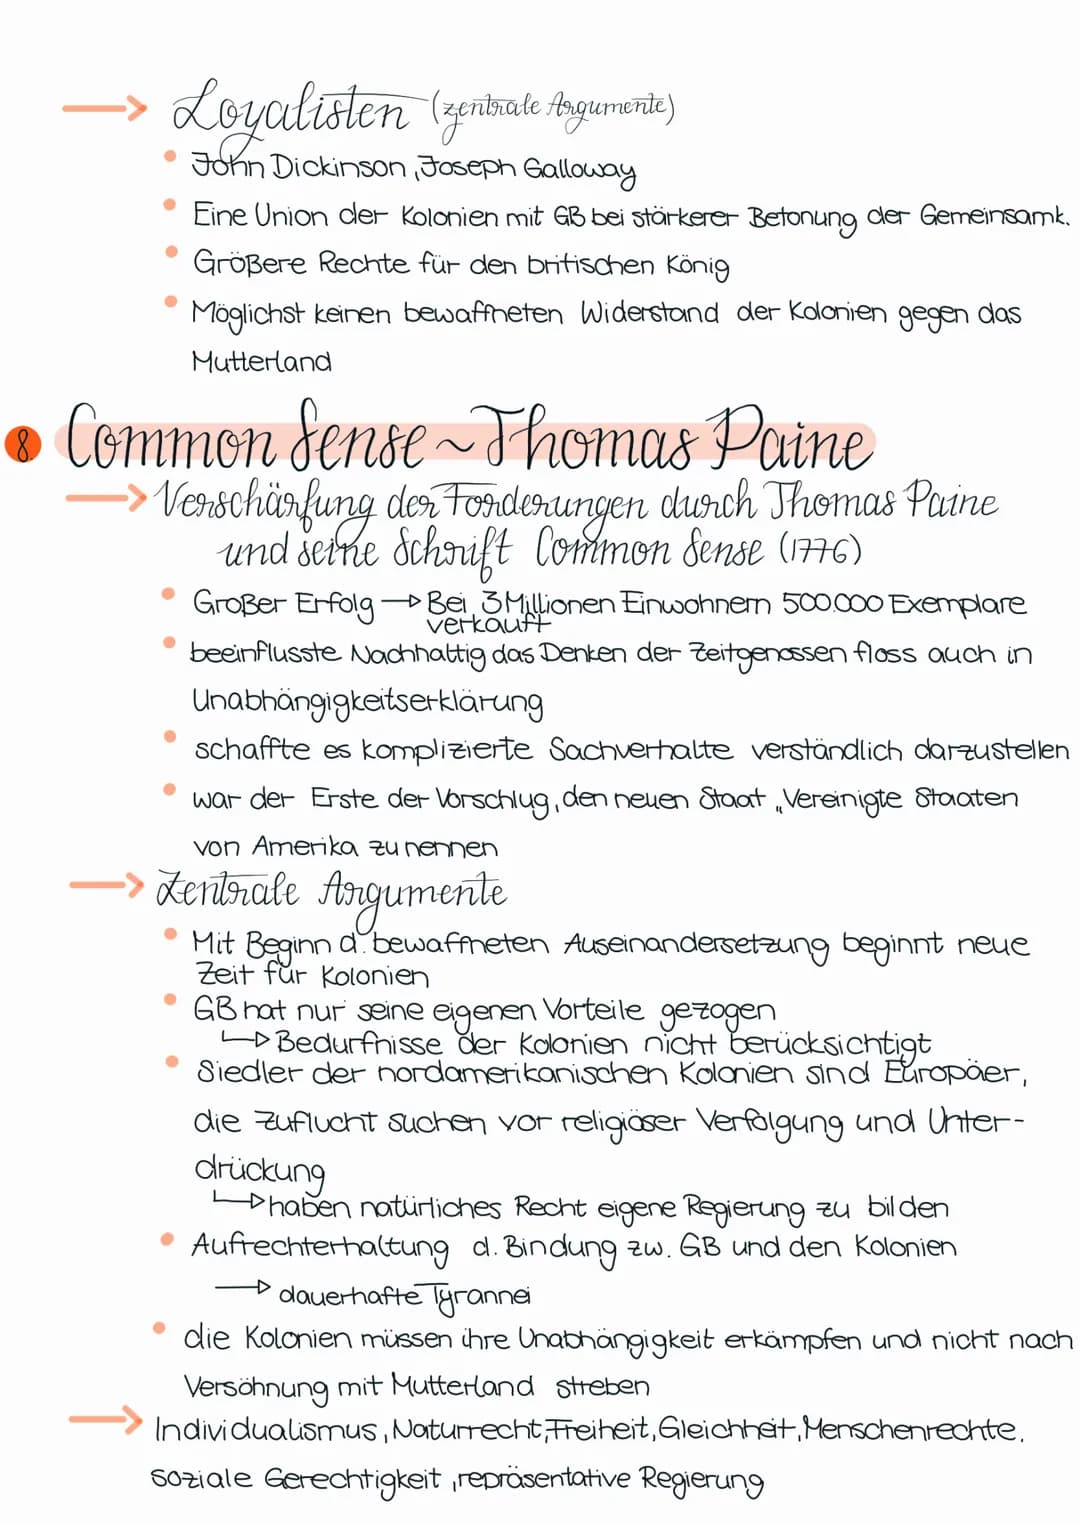 Loyalisten (zentrale Argumente)
John Dickinson, Joseph Galloway
Eine Union der Kolonien mit GB bei stärkerer Betonung der Gemeinsamk.
Größere Rechte für den britischen König
Möglichst keinen bewaffneten Widerstand der Kolonien gegen das
Mutterland
8. Common Sense ~ Thomas Paine
Verschärfung der Forderungen durch Thomas Paine
und seine Schrift Common Sense (1776)
Großer Erfolg → Bei 3 Millionen Einwohnern 500.000 Exemplare
verkauft
beeinflusste Nachhaltig das Denken der Zeitgenossen floss auch in
Unabhängigkeitserklärung
schaffte es komplizierte Sachverhalte verständlich darzustellen
war der Erste der Vorschlug, den neuen Staat „Vereinigte Staaten
von Amerika zu nennen
Zentrale Argumente
Mit Beginn d. bewaffneten Auseinandersetzung beginnt neue
Zeit für Kolonien
GB hat nur seine eigenen Vorteile gezogen
↳ Bedürfnisse der Kolonien nicht berücksichtigt
Siedler der nordamerikanischen Kolonien sind Europäer,
die Zuflucht suchen vor religiöser Verfolgung und Unter-
drückung
↳ haben natürliches Recht eigene Regierung zu bilden
Aufrechterhaltung d. Bindung zw. GB und den Kolonien
→ dauerhafte Tyrannei
die Kolonien müssen ihre Unabhängigkeit erkämpfen und nicht nach
Versöhnung mit Mutterland streben
Individualismus, Naturrecht, Freiheit, Gleichheit, Menschenrechte,
soziale Gerechtigkeit, repräsentative Regierung